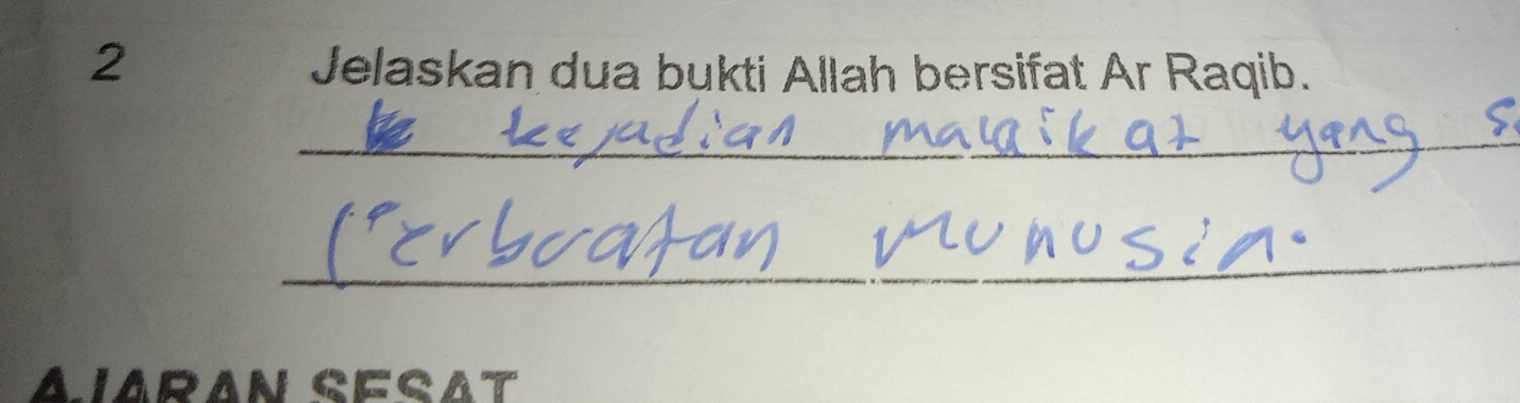 2 Jelaskan dua bukti Allah bersifat Ar Raqib.
kejadian malaikat yang
Perbuatan Munusia.
AJARAN SESAT